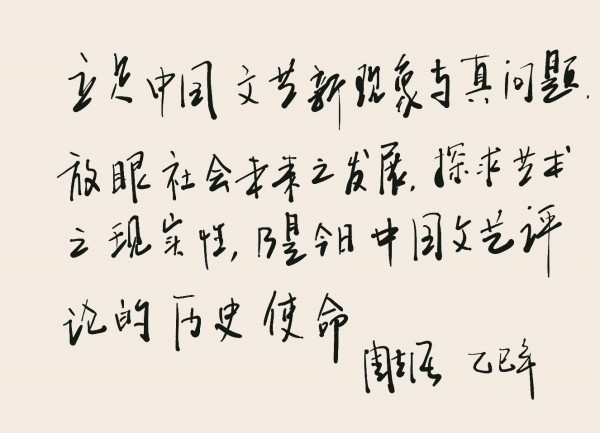 立足中国文艺新现象与真问题,
放眼社会未来之发展,探求艺术
之现实性,乃是今日中国文艺评
论的历史使命
周志强 乙巳年